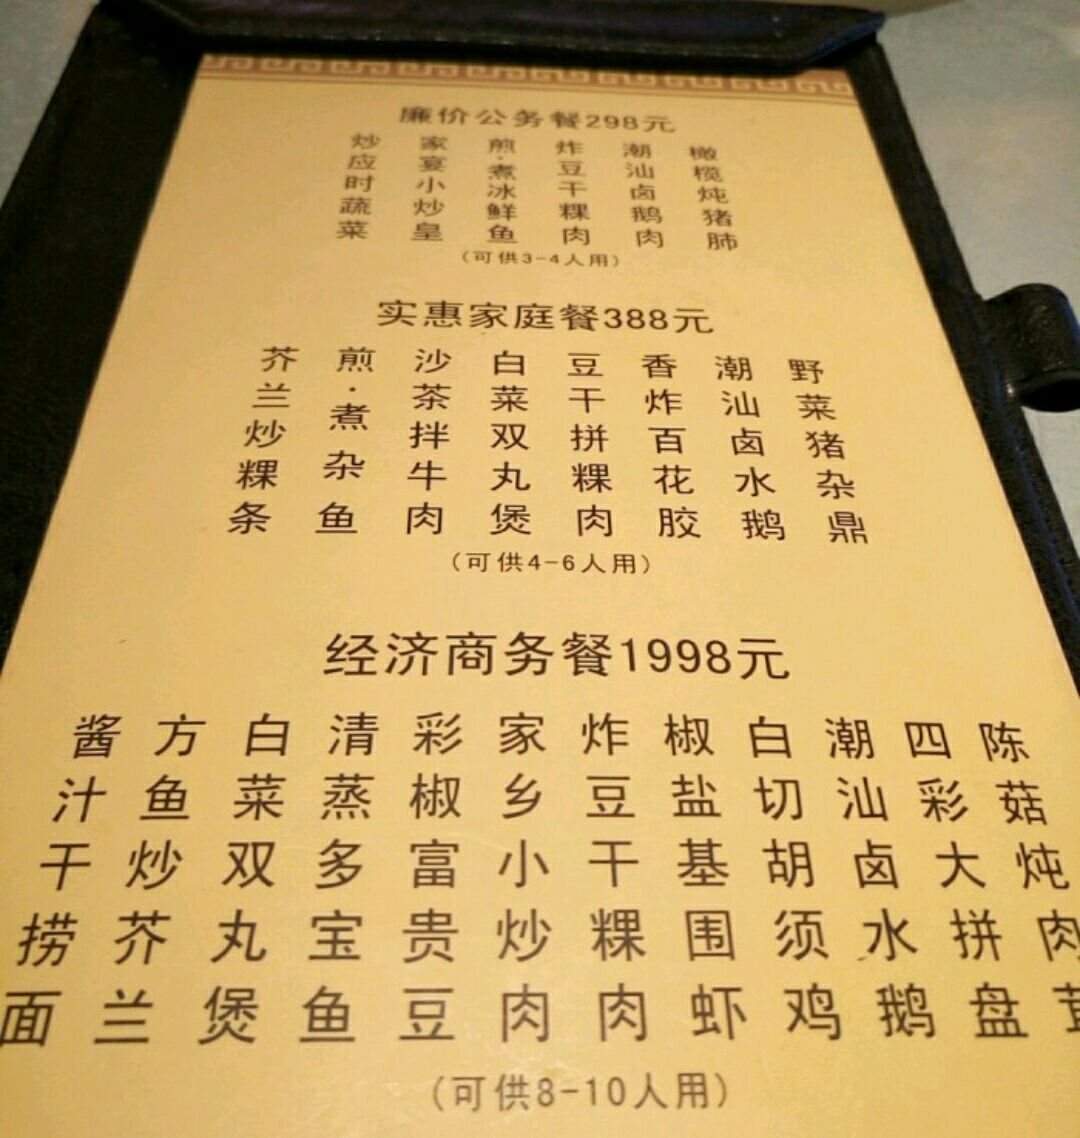 廉价公务餐298元
橄榄炖猪肺
潮汕卤鹅肉
炸豆干粿肉
煎·煮冰鲜鱼
家宴小炒皇
炒应时蔬菜
(可供3-4人用)
实惠家庭餐388元
野菜猪杂鼎
潮汕卤水鹅
香炸百花胶
豆干拼粿肉
白菜双丸煲
沙茶拌牛肉
煎·煮杂鱼
芥兰炒粿条
(可供4-6人用)
经济商务餐1998元
陈菇炖肉茸
四彩大拼盘
潮汕卤水鹅
白切胡须鸡
椒盐基围虾
炸豆干粿肉
家乡小炒肉
彩椒富贵豆
清蒸多宝鱼
白菜双丸煲
方鱼炒芥兰
酱汁干捞面
(可供8-10人用)